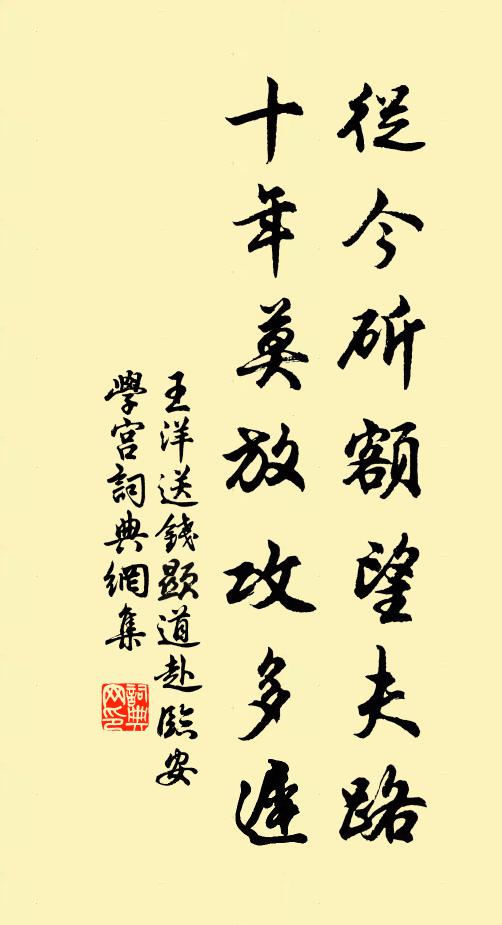 從今斫額望夫路
十年莫放攻多遲
王洋送錢顯道赴臨安
學宮詞典網集
詞典网印